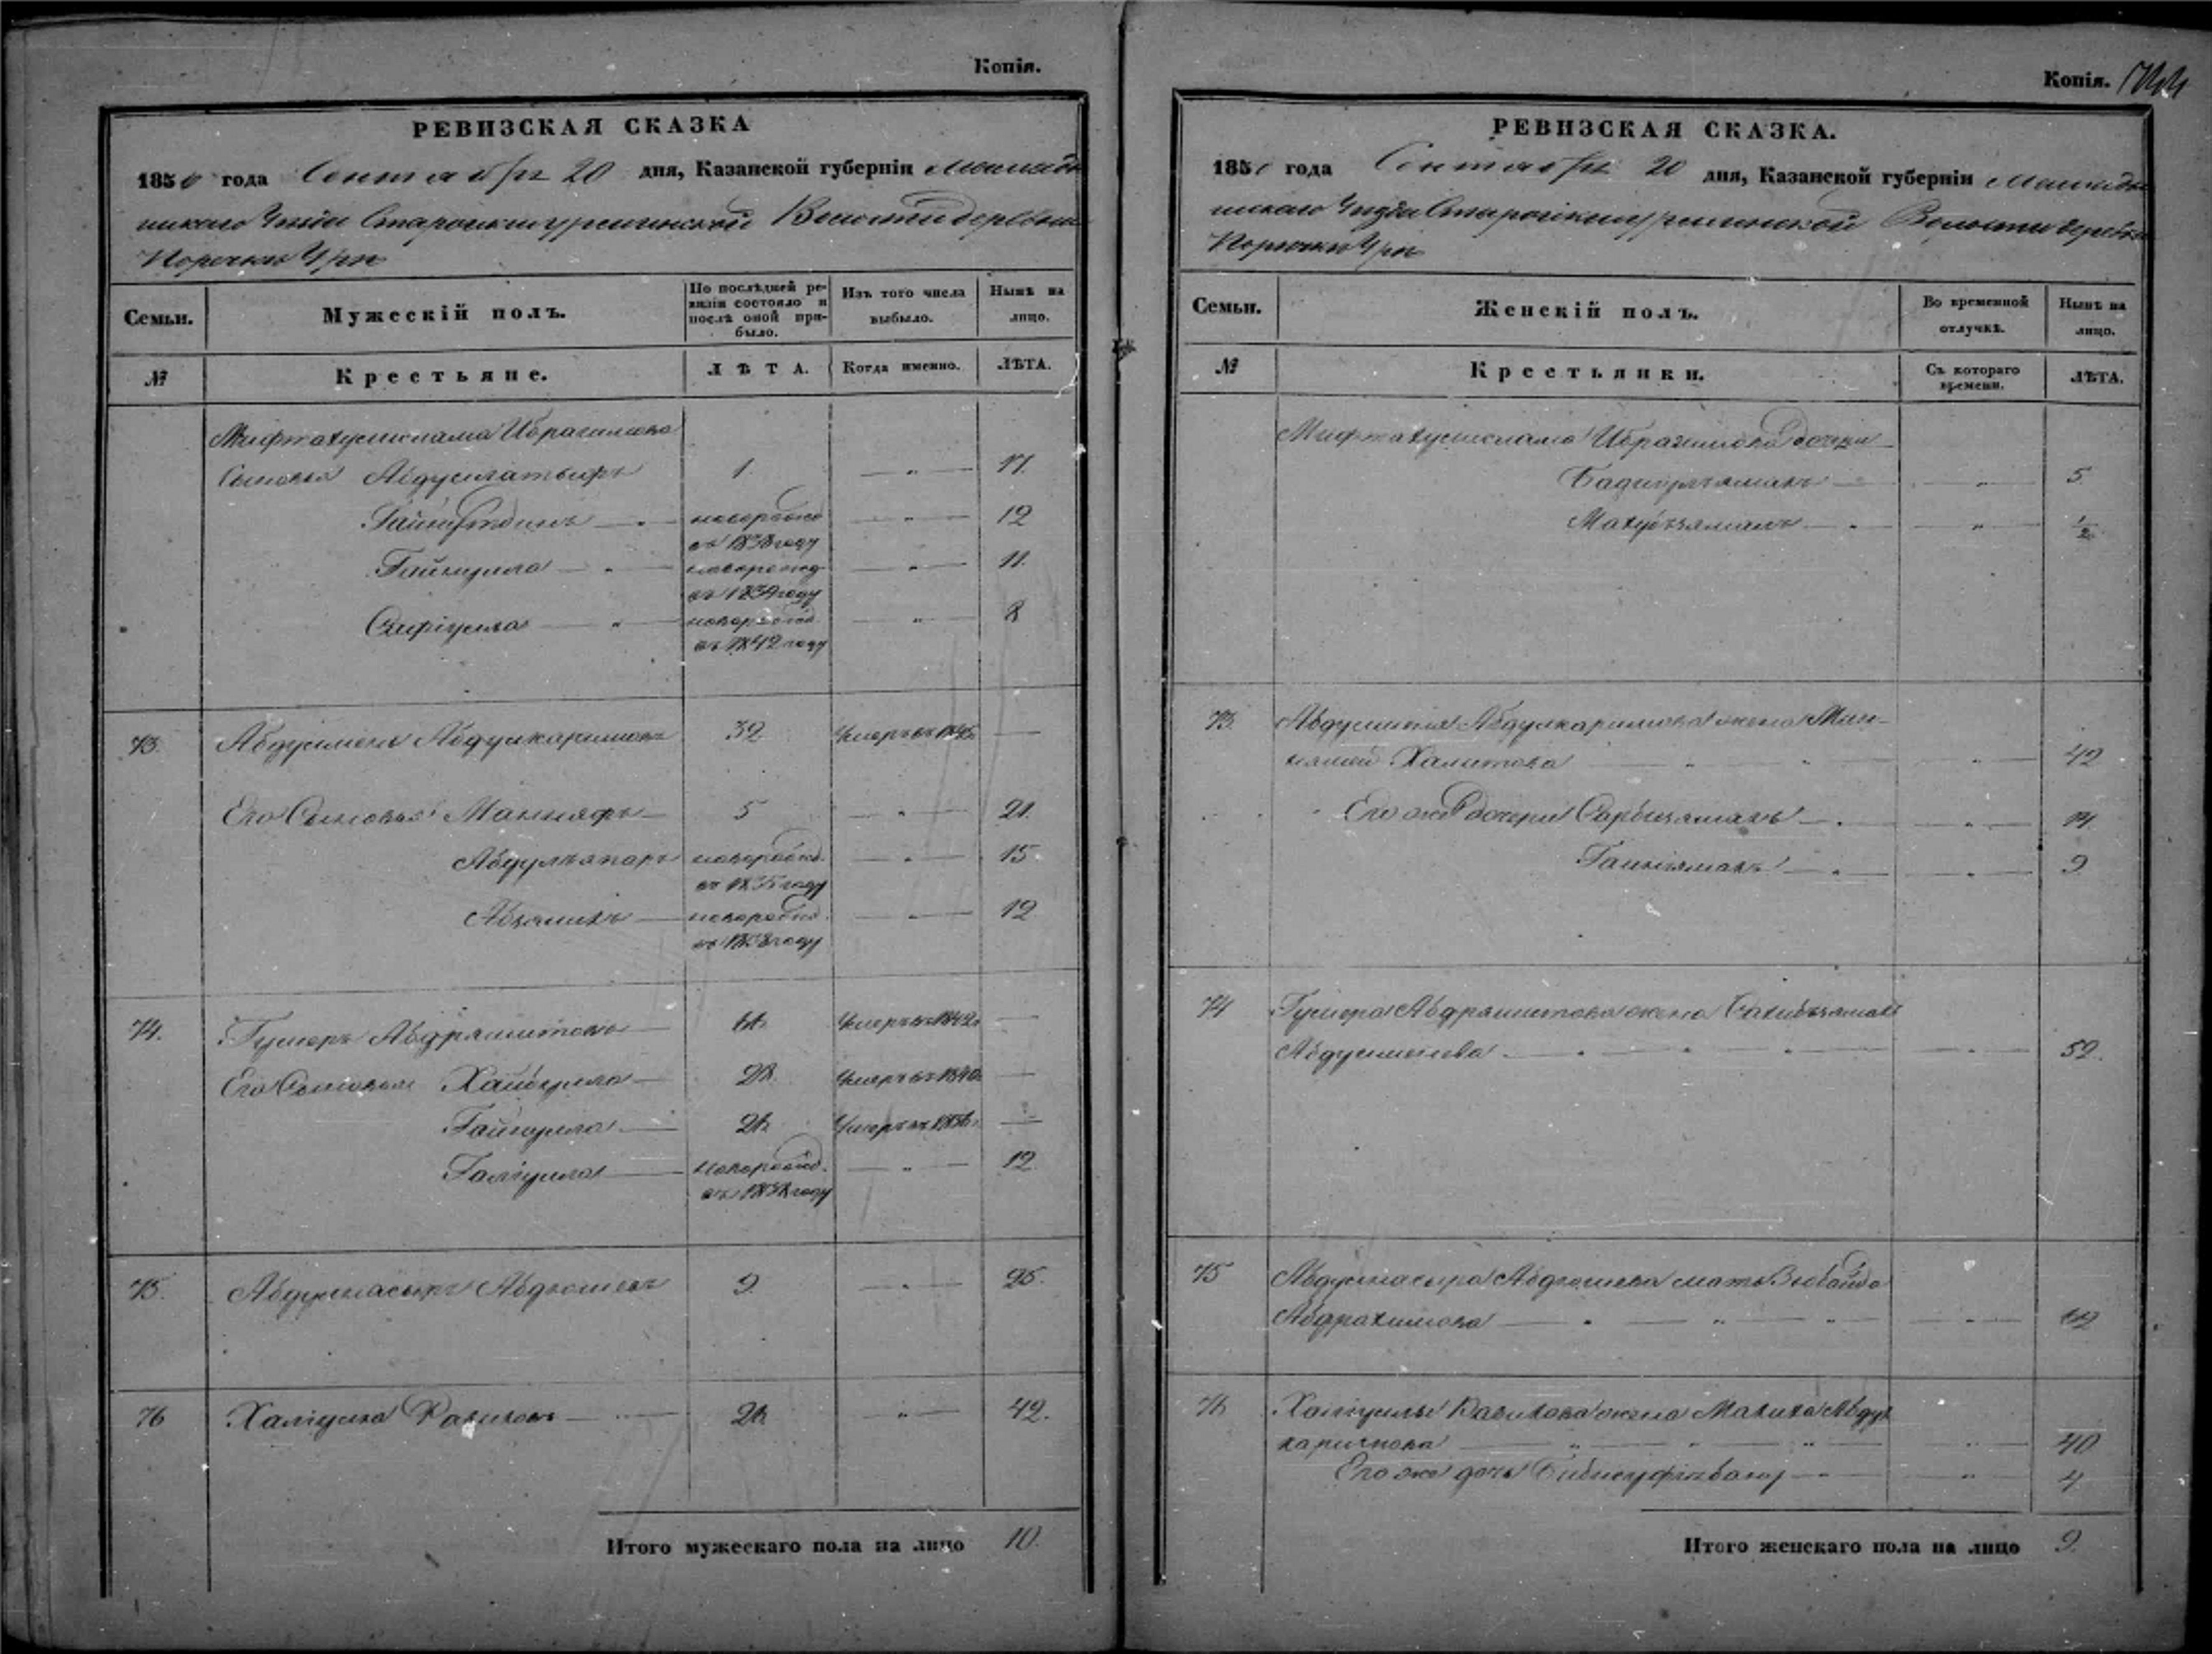 Копія.
РЕВИЗСКАЯ СКАЗКА
1850 года Сентабря 20 дня, Казанской губерніи Мамады
шскаго Уезда Волости деревни
Порчки Ура
Семьи.
Мужескій полъ.
По послѣдней ре-
визіи состояло и
послѣ оной при-
было.
Изъ того числа
выбыло.
Нынѣ на
лицо.
№
Крестьяне.
ЛѢТА.
Когда именно.
ЛѢТА.
Мифтахуислама Ибрагимова
Сыновья Абдуллатыфъ 1. — " — 17.
Гайнутдинъ — " — новорожд — " — 12
въ 1838 году
Гайнулла — " — новорожд — " — 11.
въ 1839 году
Сафіулла — " — новорожд — " — 8
въ 1842 году
73. Абдулменъ Абдулкаримовъ 32 Умеръ въ 1845 —
Его Сыновья Маннафъ — 5 — " — 21.
новорожд. — " — 15.
въ 1835 году
новорожд. — " — 12
въ 1838 году
74. Гумеръ Абдряшитовъ — 44 Умеръ въ 1842 —
Его Сыновья Хайбулла — 28. Умеръ въ 1840 —
Гайнулла — Умеръ въ —
Галиулла — новорожд. — " — 12.
въ 1838 году
75. Абдулнасыръ Абдюшевъ 9. — " — 25.
76 Халиулла — 26 — " — 42.
Итого мужескаго пола на лицо 10.
Копія. 744
РЕВИЗСКАЯ СКАЗКА.
1850 года Сентабря 20 дня, Казанской губерніи Мамады
шскаго Уезда Волости деревни
Порчки Ура
Семьи.
Женскій полъ.
Во временной
отлучкѣ.
Нынѣ на
лицо.
№
Крестьянки.
Съ котораго
времени.
ЛѢТА.
Мифтахуислама Ибрагимова дочери
Бадигулъямалъ — " — 5.
Махубъямалъ — " — " — 1/2
73. Абдулменя Абдулкаримова жена Мин-
Халитова — " — " — 42
Его же дочери Сарбиямалъ — " — " — 14.
— " — " — 9
74 Гумера Абдряшитова жена Сахибъямалъ
Абдулменева — " — " — " — " — 52.
75 Абдулнасыра Абдюшева мать Зюбайда
Абдрахимова — " — " — " — " —
76 Халиуллы жена Малиха Абдул
каримова — " — " — " — " — 40
Его же дочь — " — " — 4
Итого женскаго пола на лицо 9.